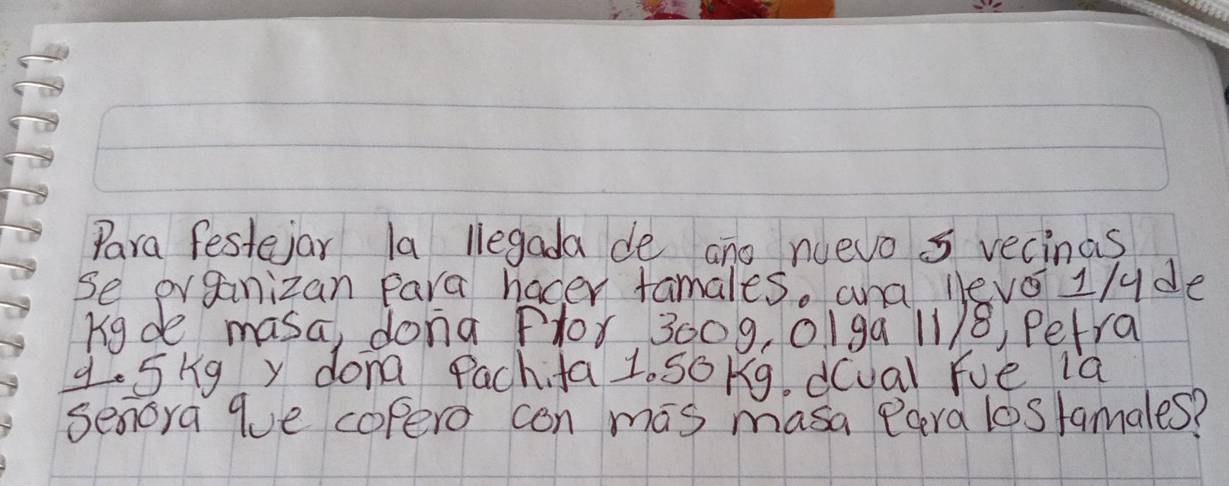 Para festejar la llegada de año nuevo 5 vecinas
se organizan para hacer tamales. ana llevó 1/4 de
Kg de masa, doña Flor 300g, Olga 11/8, Petra
1.5 Kg y doña Pachita 1.50 Kg. ¿Cual fue la
señora que copero con más masa para los tamales?